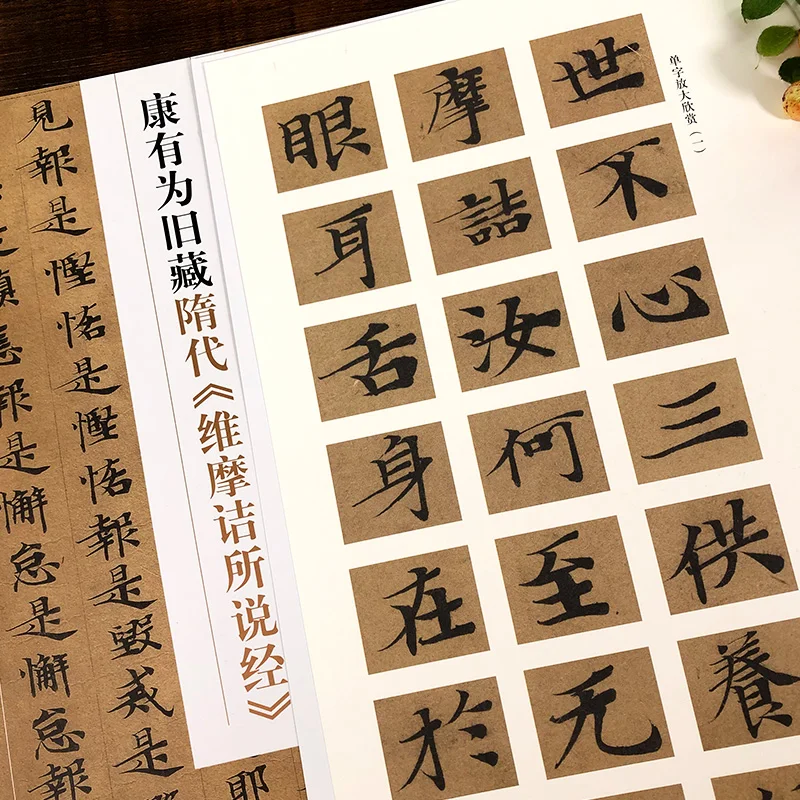 单字放大欣赏（一）
世不心三供養
摩詰汝何至无
眼耳舌身在於
康有为旧藏隋代《维摩诘所说经》
耶
見報是慳悋是慳悋報是毀戒是
瞋恚報是懈怠是懈怠報